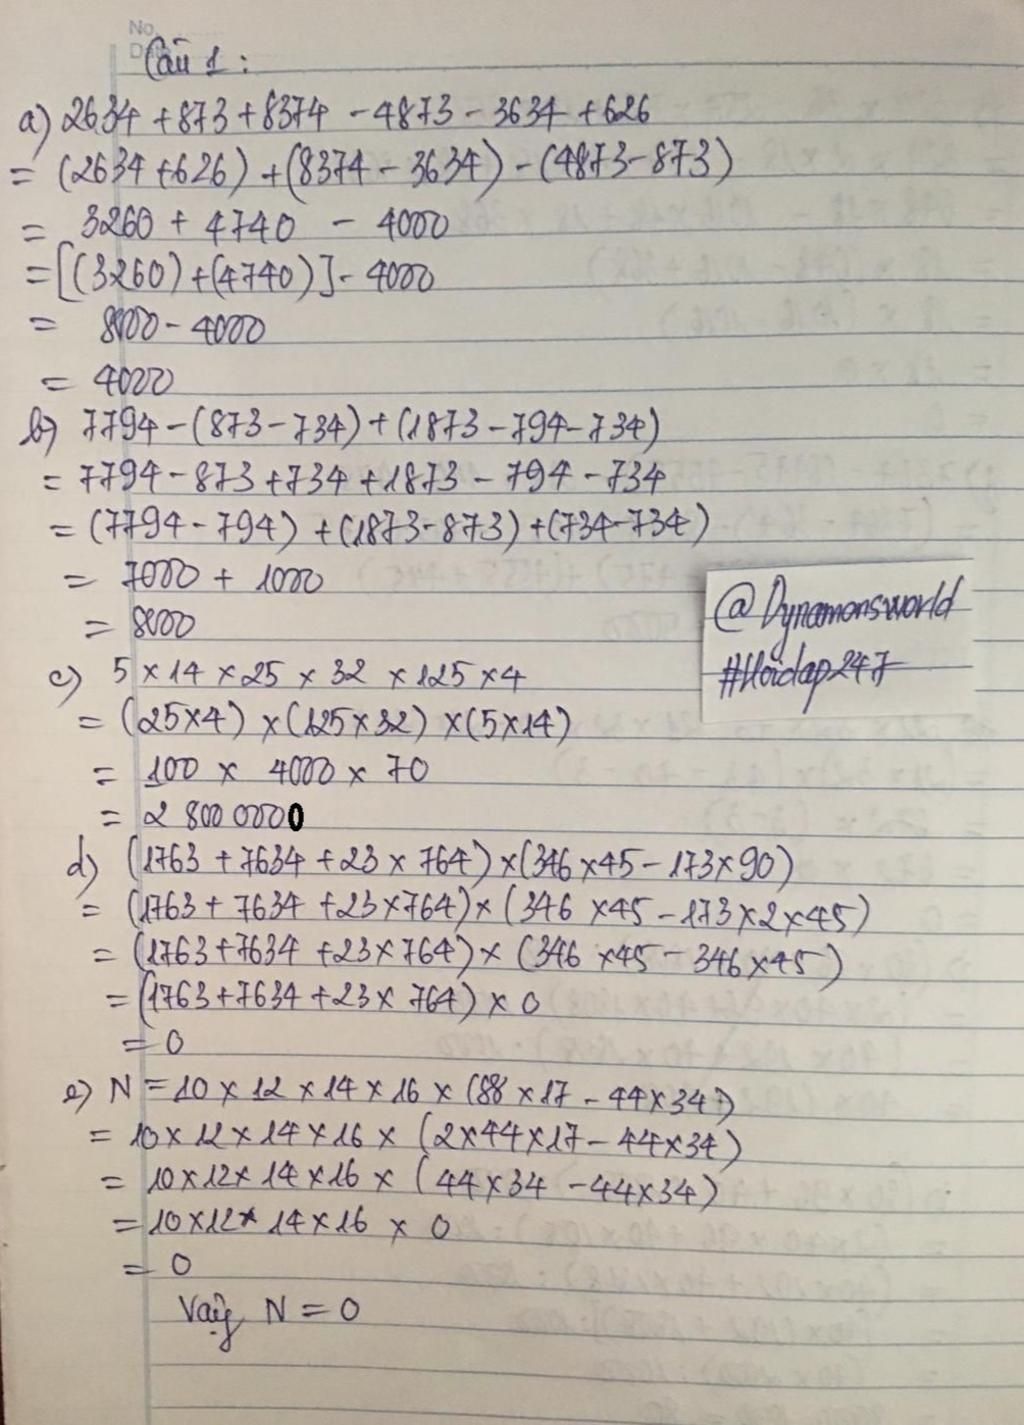 No.
Câu 1 :
a) 2634 + 873 + 8374 - 4873 - 3634 + 626
= (2634 + 626) + (8374 - 3634) - (4873 - 873)
= 3260 + 4740 - 4000
= [(3260) + (4740)] - 4000
= 8000 - 4000
= 4000
b) 7794 - (873 - 734) + (1873 - 794 - 734)
= 7794 - 873 + 734 + 1873 - 794 - 734
= (7794 - 794) + (1873 - 873) + (734 - 734)
= 7000 + 1000
= 8000
@Dynamonsworld
#Hoidap247
c) 5 × 14 × 25 × 32 × 125 × 4
= (25×4) × (125×32) × (5×14)
= 100 × 4000 × 70
= 2 800 0000
d) (1763 + 7634 + 23 × 764) × (346 × 45 - 173 × 90)
= (1763 + 7634 + 23 × 764) × (346 × 45 - 173 × 2 × 45)
= (1763 + 7634 + 23 × 764) × (346 × 45 - 346 × 45)
= (1763 + 7634 + 23 × 764) × 0
= 0
e) N = 10 × 12 × 14 × 16 × (88 × 17 - 44 × 34)
= 10 × 12 × 14 × 16 × (2 × 44 × 17 - 44 × 34)
= 10 × 12 × 14 × 16 × (44 × 34 - 44 × 34)
= 10 × 12 × 14 × 16 × 0
= 0
Vậy N = 0